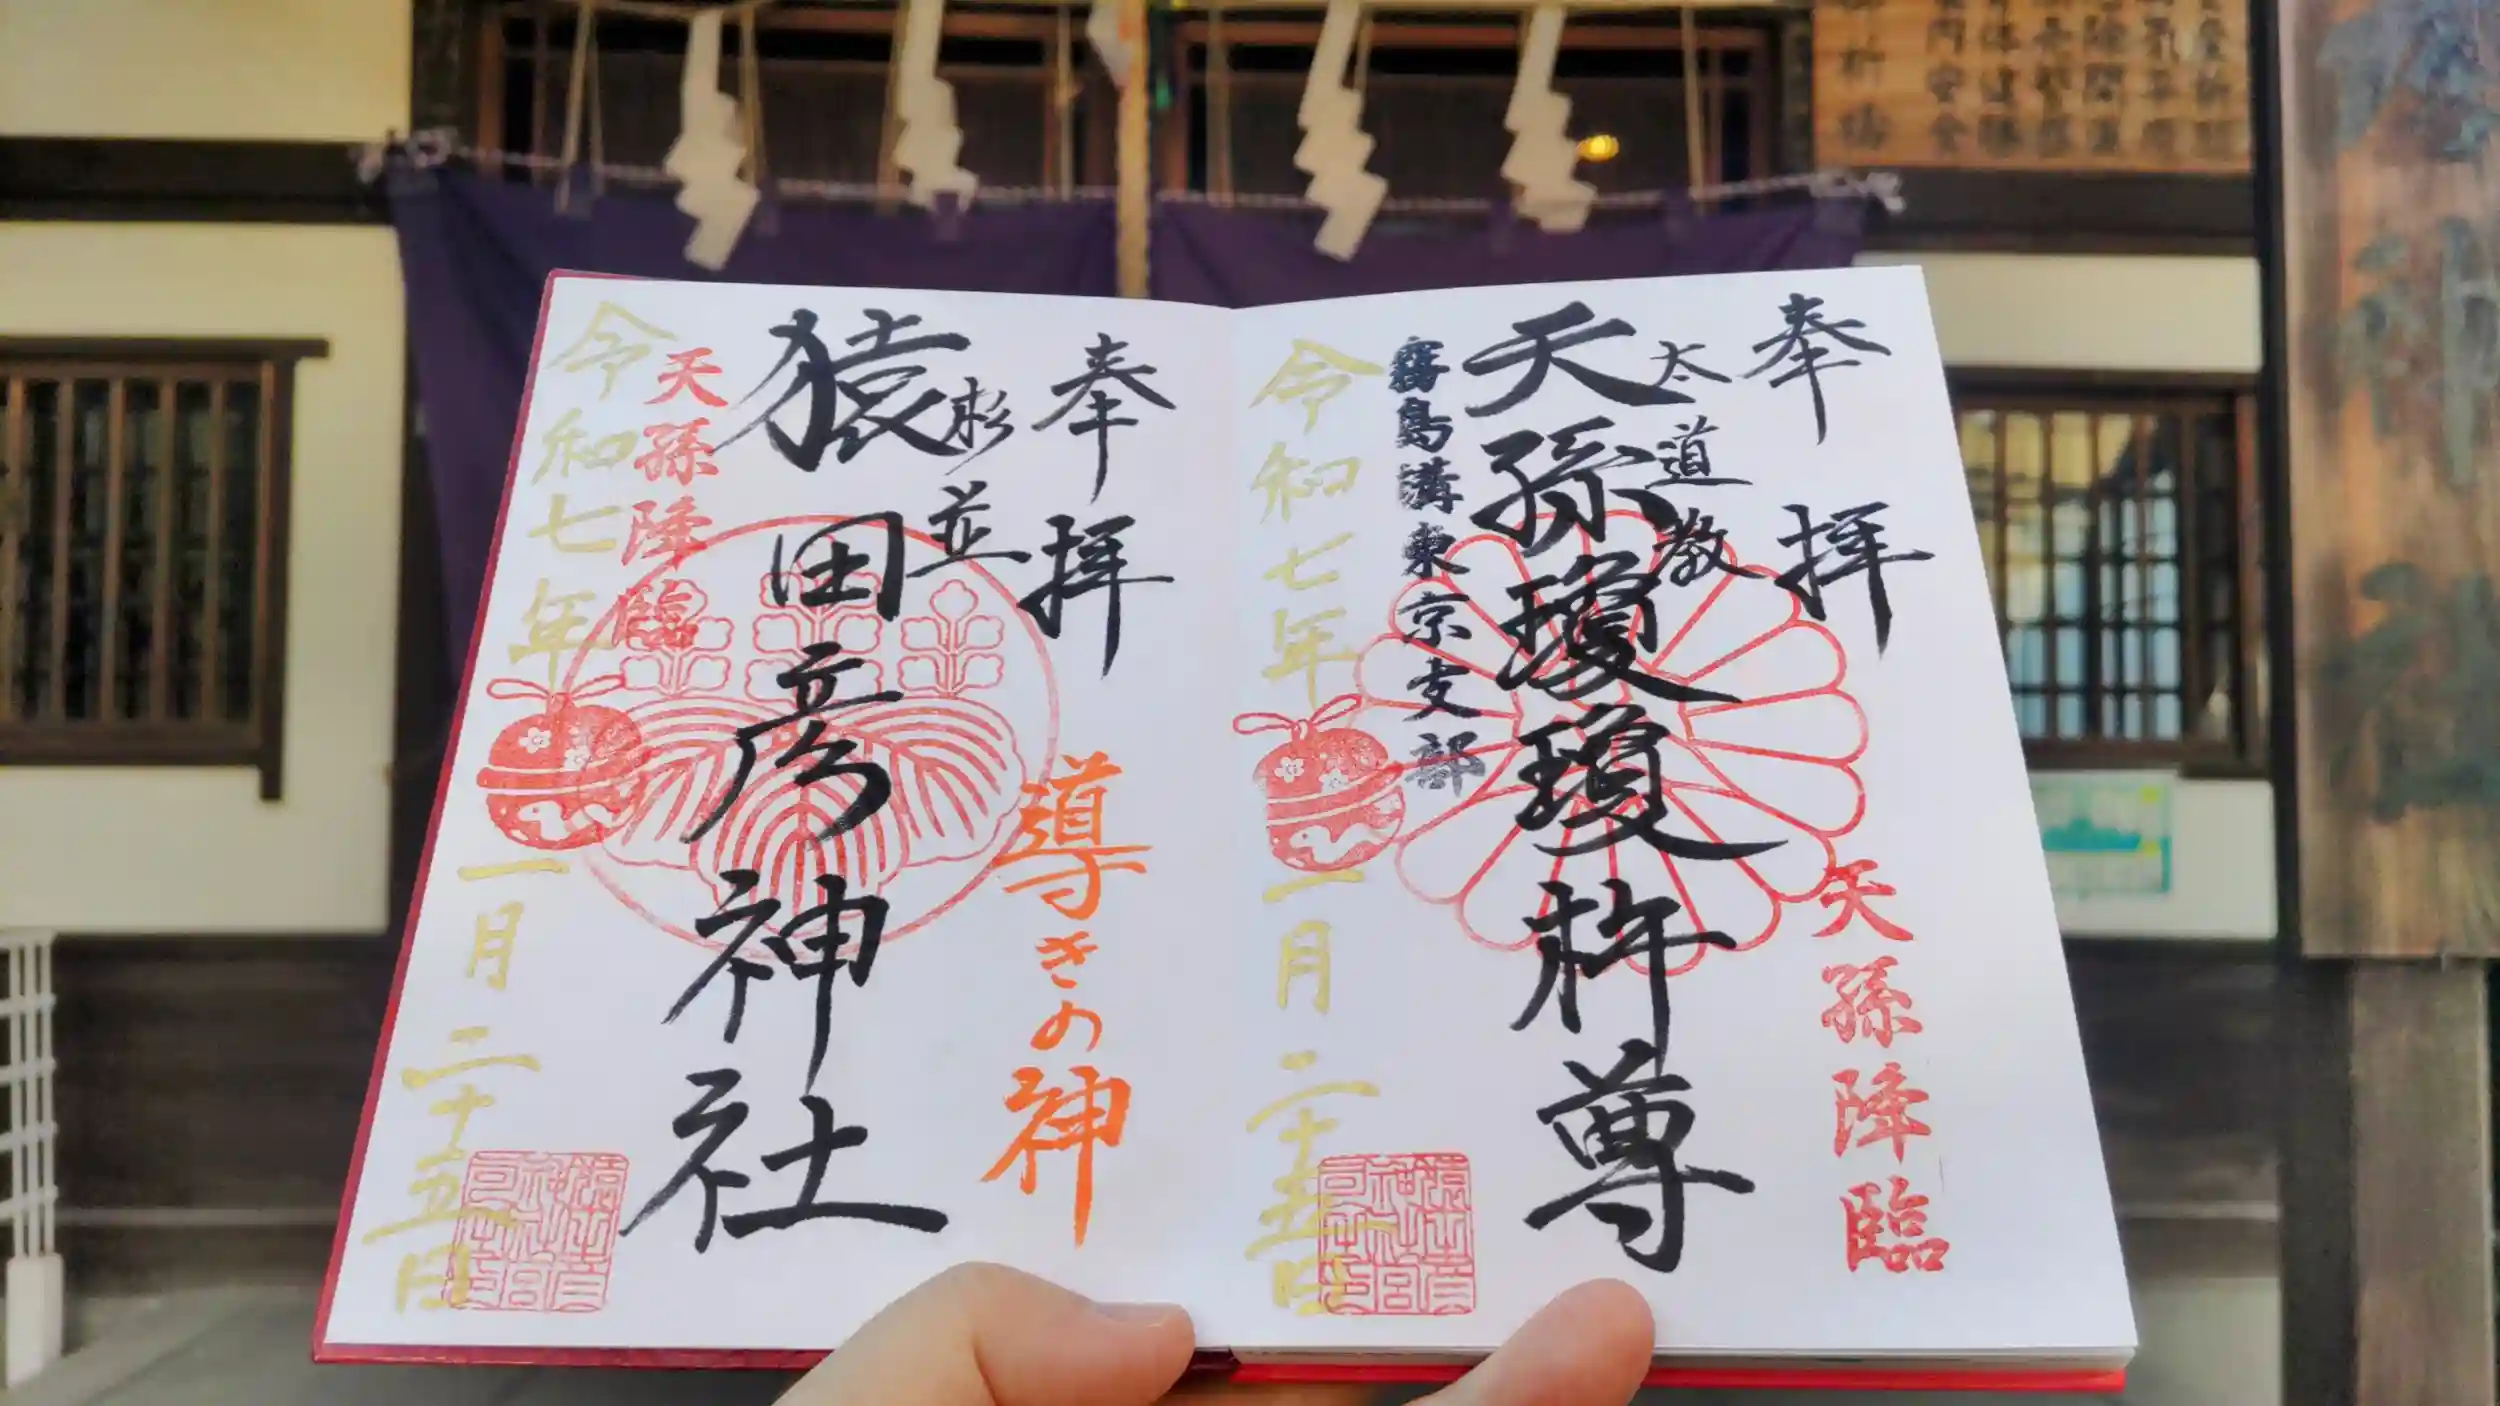 奉拝
太道教
天孫瓊瓊杵尊
霧島講東京支部
天孫降臨
令和七年
一月二十五日
奉拝
杉並
猿田彦神社
導きの神
天孫降臨
令和七年
一月二十五日